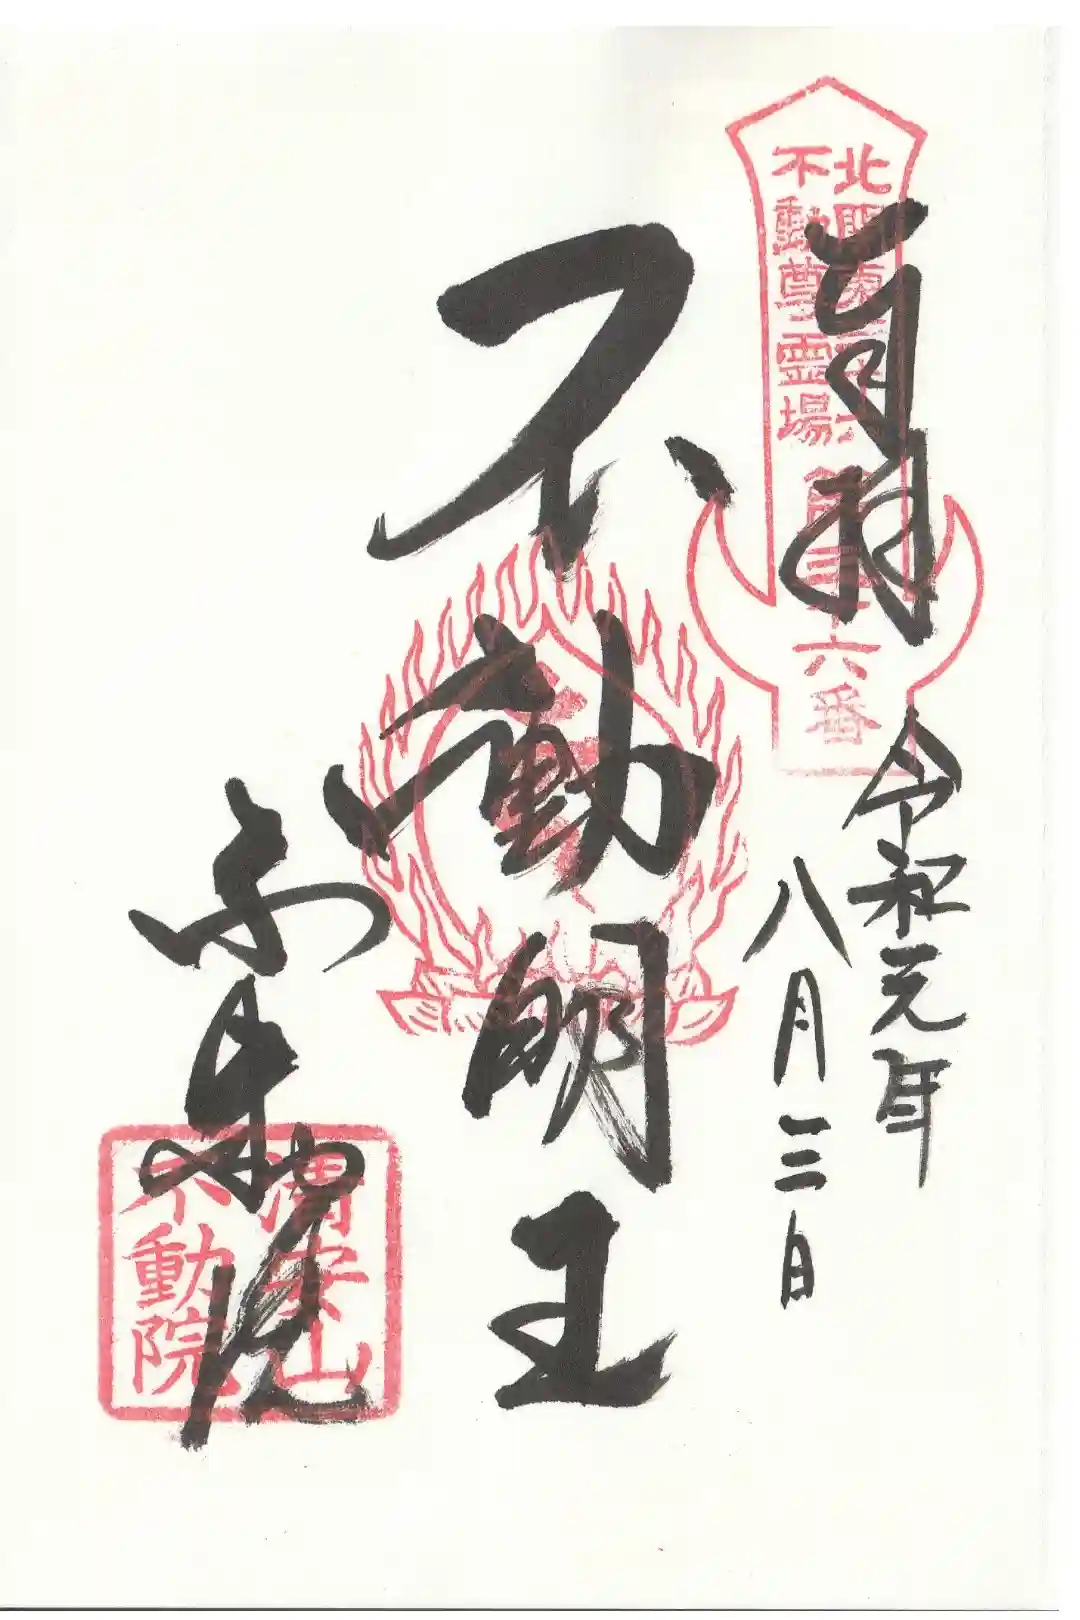 奉拝
北関東三十六
不動尊霊場
第三十六番
令和元年
八月三日
不動明王
不動院
清安山
不動院